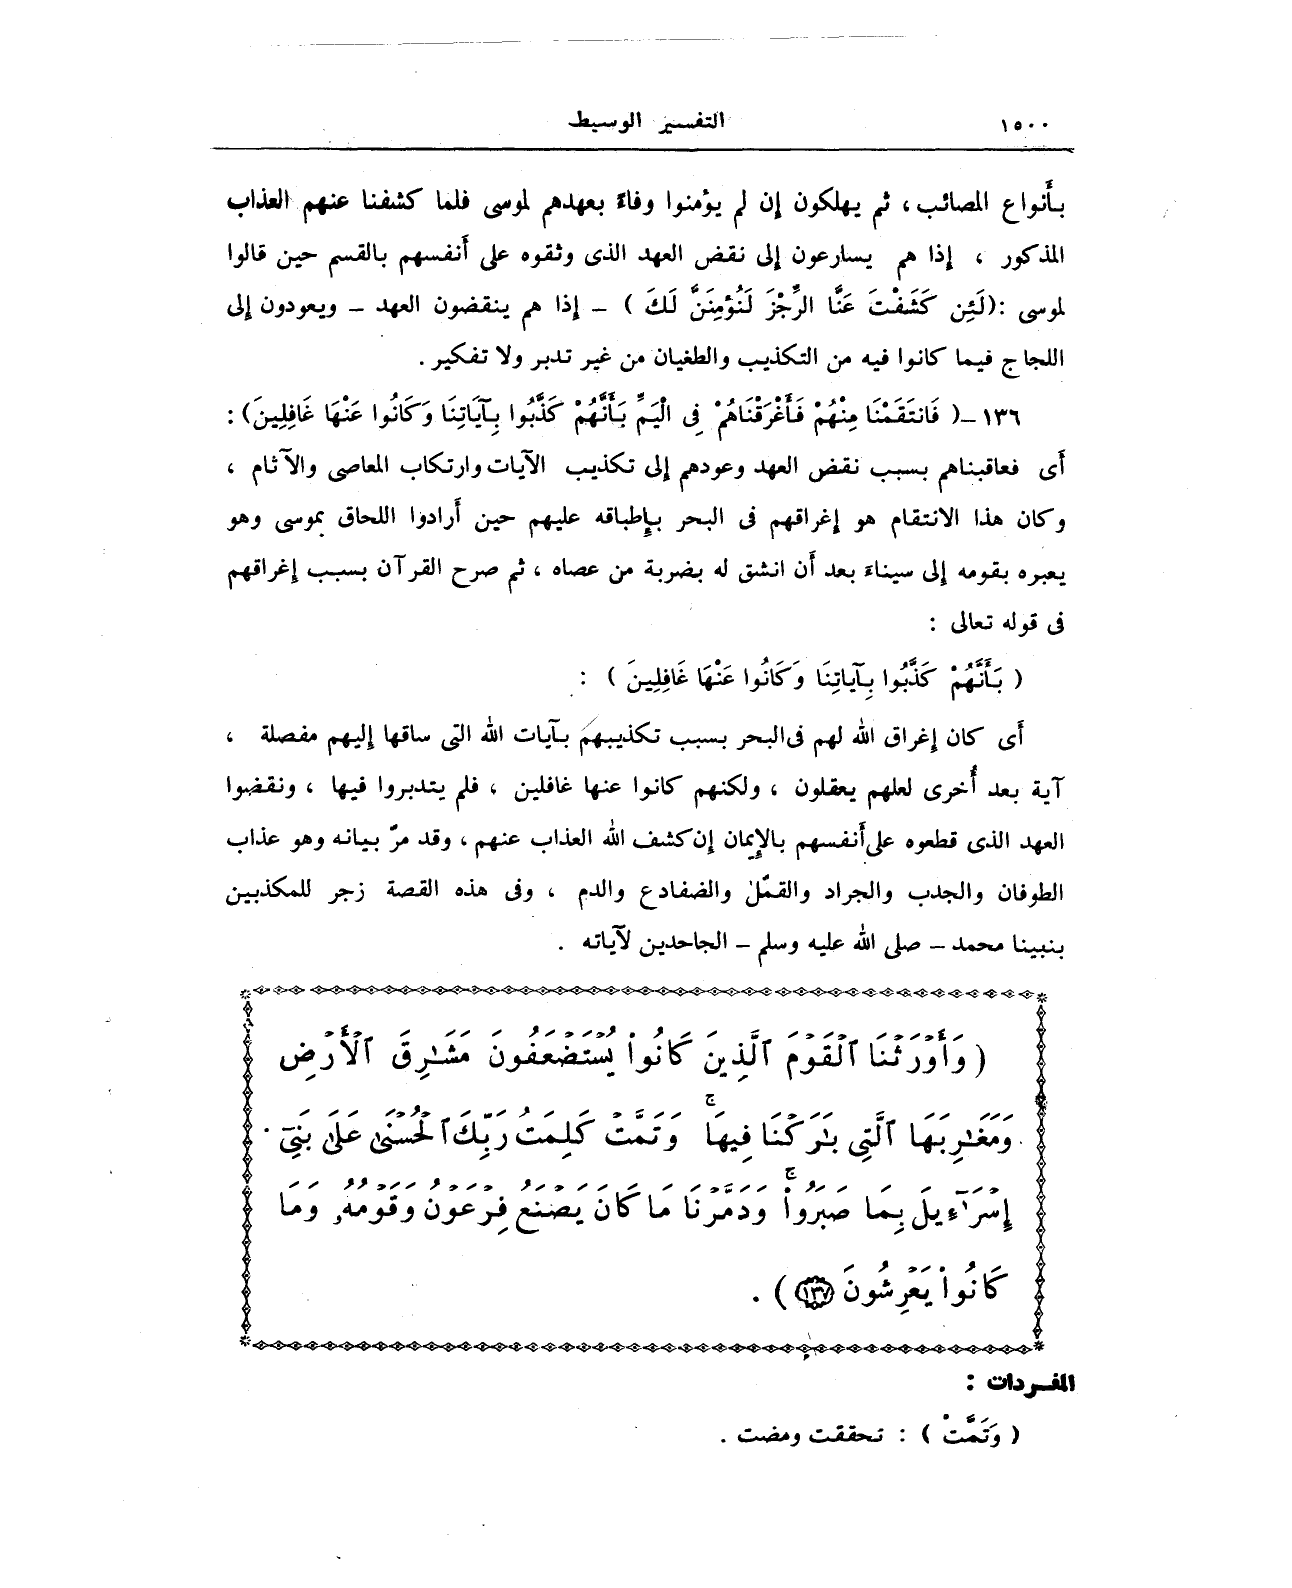 ١٥٠٠ التفسير الوسيط
بأَنواع المصائب، ثم يهلكون إن لم يؤمنوا وفاءً بعهدهم لموسى فلما كشفنا عنهم العذاب
المذكور ، إذا هم يسارعون إلى نقض العهد الذى وثقوه على أَنفسهم بالقسم حين قالوا
لموسى :(لَئِن كَشَفْتَ عَنَّا الرِّجْزَ لَنُؤْمِنَنَّ لَكَ ) – إذا هم ينقضون العهد – ويعودون إلى
اللجاج فيما كانوا فيه من التكذيب والطغيان من غير تدبر ولا تفكير .
١٣٦ –( فَانتَقَمْنَا مِنْهُمْ فَأَغْرَقْنَاهُمْ فِى الْيَمِّ بِأَنَّهُمْ كَذَّبُوا بِآيَاتِنَا وَكَانُوا عَنْهَا غَافِلِينَ) :
أَى فعاقبناهم بسبب نقض العهد وعودهم إلى تكذيب الآيات وارتكاب المعاصى والآثام ،
وكان هذا الانتقام هو إغراقهم فى البحر بإطباقه عليهم حين أَرادوا اللحاق بموسى وهو
يعبره بقومه إلى سيناءَ بعد أَن انشق له بضربة من عصاه ، ثم صرح القرآن بسبب إغراقهم
فى قوله تعالى :
( بِأَنَّهُمْ كَذَّبُوا بِآيَاتِنَا وَكَانُوا عَنْهَا غَافِلِينَ ) :
أَى كان إغراق الله لهم فى البحر بسبب تكذيبهم بآيات الله التى ساقها إليهم مفصلة ،
آية بعد أُخرى لعلهم يعقلون ، ولكنهم كانوا عنها غافلين ، فلم يتدبروا فيها ، ونقضوا
العهد الذى قطعوه على أَنفسهم بالإيمان إن كشف الله العذاب عنهم ، وقد مرّ بيانه وهو عذاب
الطوفان والجدب والجراد والقمّل والضفادع والدم ، وفى هذه القصة زجر للمكذبين
بنبينا محمد – صلى الله عليه وسلم – الجاحدين لآياته .
( وَأَوْرَثْنَا ٱلْقَوْمَ ٱلَّذِينَ كَانُوا۟ يُسْتَضْعَفُونَ مَشَٰرِقَ ٱلْأَرْضِ
وَمَغَٰرِبَهَا ٱلَّتِى بَٰرَكْنَا فِيهَا ۖ وَتَمَّتْ كَلِمَتُ رَبِّكَ ٱلْحُسْنَىٰ عَلَىٰ بَنِىٓ
إِسْرَٰٓءِيلَ بِمَا صَبَرُوا۟ ۖ وَدَمَّرْنَا مَا كَانَ يَصْنَعُ فِرْعَوْنُ وَقَوْمُهُۥ وَمَا
كَانُوا۟ يَعْرِشُونَ ١٣٧ ) .
المفردات :
( وَتَمَّتْ ) : تحققت ومضت .